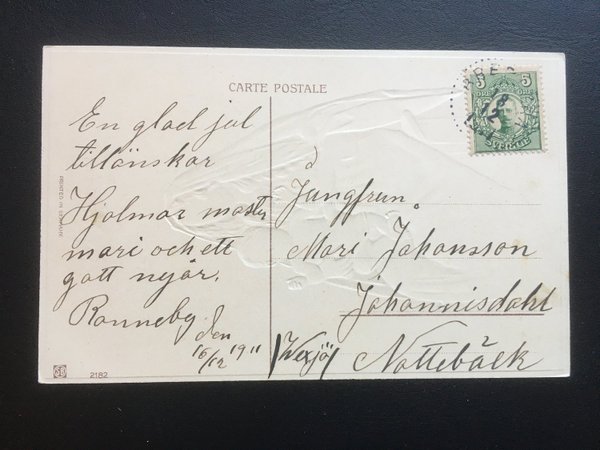 CARTE POSTALE
En glad jul
tillönskar
Hjalmar
mari och ett
gott nyår.
Ronneby den
16/12 1911
Jungfrun
Mari Johansson
Johannisdahl
Nottebäck
/Wexjö/
5 5
ÖRE ÖRE
SVERIGE
PRINTED IN GERMANY
SB
2182